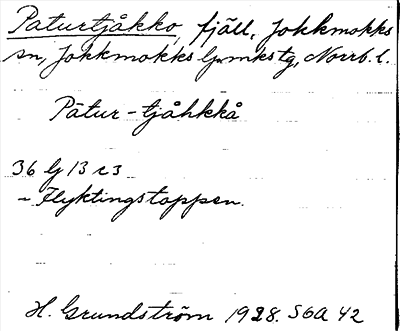 Paturtjåkko, fjäll, Jokkmokks
sn, Jokkmokks lpmkstg, Norrb. l.
Pātur-tjåhkkå
36 lj 13 r3
~ Flyktingstoppen.
H. Grundström 1928. SOA 42